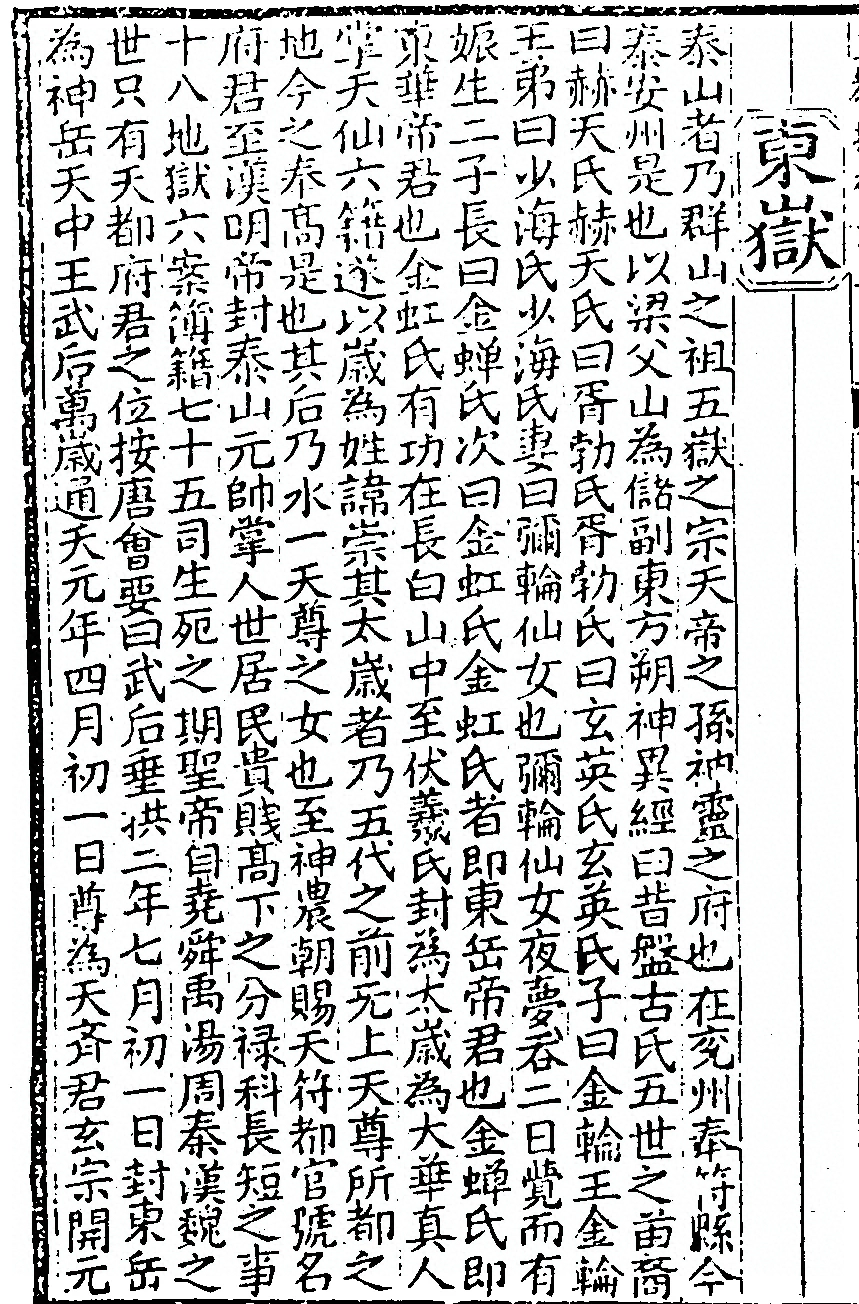 東嶽
泰山者乃群山之祖五嶽之宗天帝之孫神靈之府也在兖州奉符縣今
泰安州是也以梁父山為儲副東方朔神異經曰昔盤古氏五世之苗裔
曰赫天氏赫天氏曰胥勃氏胥勃氏曰玄英氏玄英氏子曰金輪王金輪
王弟曰少海氏少海氏妻曰彌輪仙女也彌輪仙女夜夢吞二日覺而有
娠生二子長曰金蟬氏次曰金虹氏金虹氏者即東岳帝君也金蟬氏即
東華帝君也金虹氏有功在長白山中至伏羲氏封為太歲為大華真人
掌天仙六籍遂以歲為姓諱崇其太歲者乃五代之前无上天尊所都之
地今之奉高是也其后乃水一天尊之女也至神農朝賜天符都官號名
府君至漢明帝封泰山元帥掌人世居民貴賤高下之分祿科長短之事
十八地獄六案簿籍七十五司生死之期聖帝自堯舜禹湯周秦漢魏之
世只有天都府君之位按唐會要曰武后垂拱二年七月初一日封東岳
為神岳天中王武后萬歲通天元年四月初一日尊為天齊君玄宗開元